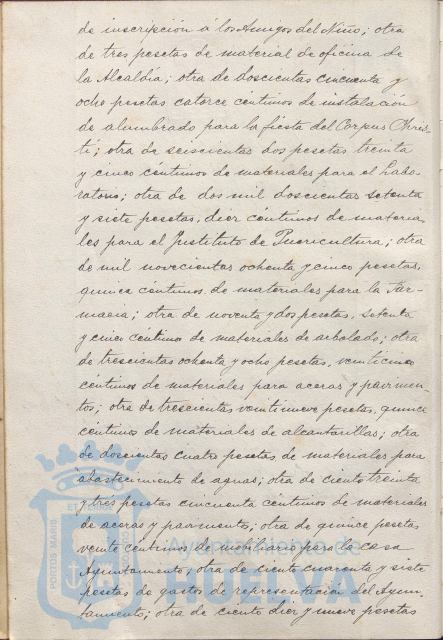 de inscripción á los Amigos del Niño; otra
de tres pesetas de material de oficina de
la Alcaldía; otra de doscientas cincuenta y
ocho pesetas catorce centimos de instalación
de alumbrado para la fiesta del Corpus Chris-
ti; otra de seiscientas dos pesetas treinta
y cinco céntimos de materiales para el Labo-
ratorio; otra de dos mil doscientas setenta
y siete pesetas, diez céntimos de materia-
les para el Instituto de Puericultura; otra
de mil novecientas ochenta y cinco pesetas,
quince céntimos de materiales para la Far-
macia; otra de noventa y dos pesetas, setenta
y cinco céntimos de materiales de arbolado; otra
de trescientas ochenta y ocho pesetas, veinticinco
céntimos de materiales para aceras y pavimen-
tos; otra de trescientas veintinueve pesetas, quince
céntimos de materiales de alcantarillas; otra
de doscientas cuatro pesetas de materiales para
abastecimiento de aguas; otra de ciento treinta
y tres pesetas cincuenta centimos de materiales
de aceras y pavimento; otra de quince pesetas
veinte céntimos de mobiliario para la casa
Ayuntamiento; otra de ciento cuarenta y siete
pesetas de gastos de representación del Ayun-
tamiento; otra de ciento diez y nueve pesetas
PORTUS MARIS ET
Ayuntamiento de
HUELVA